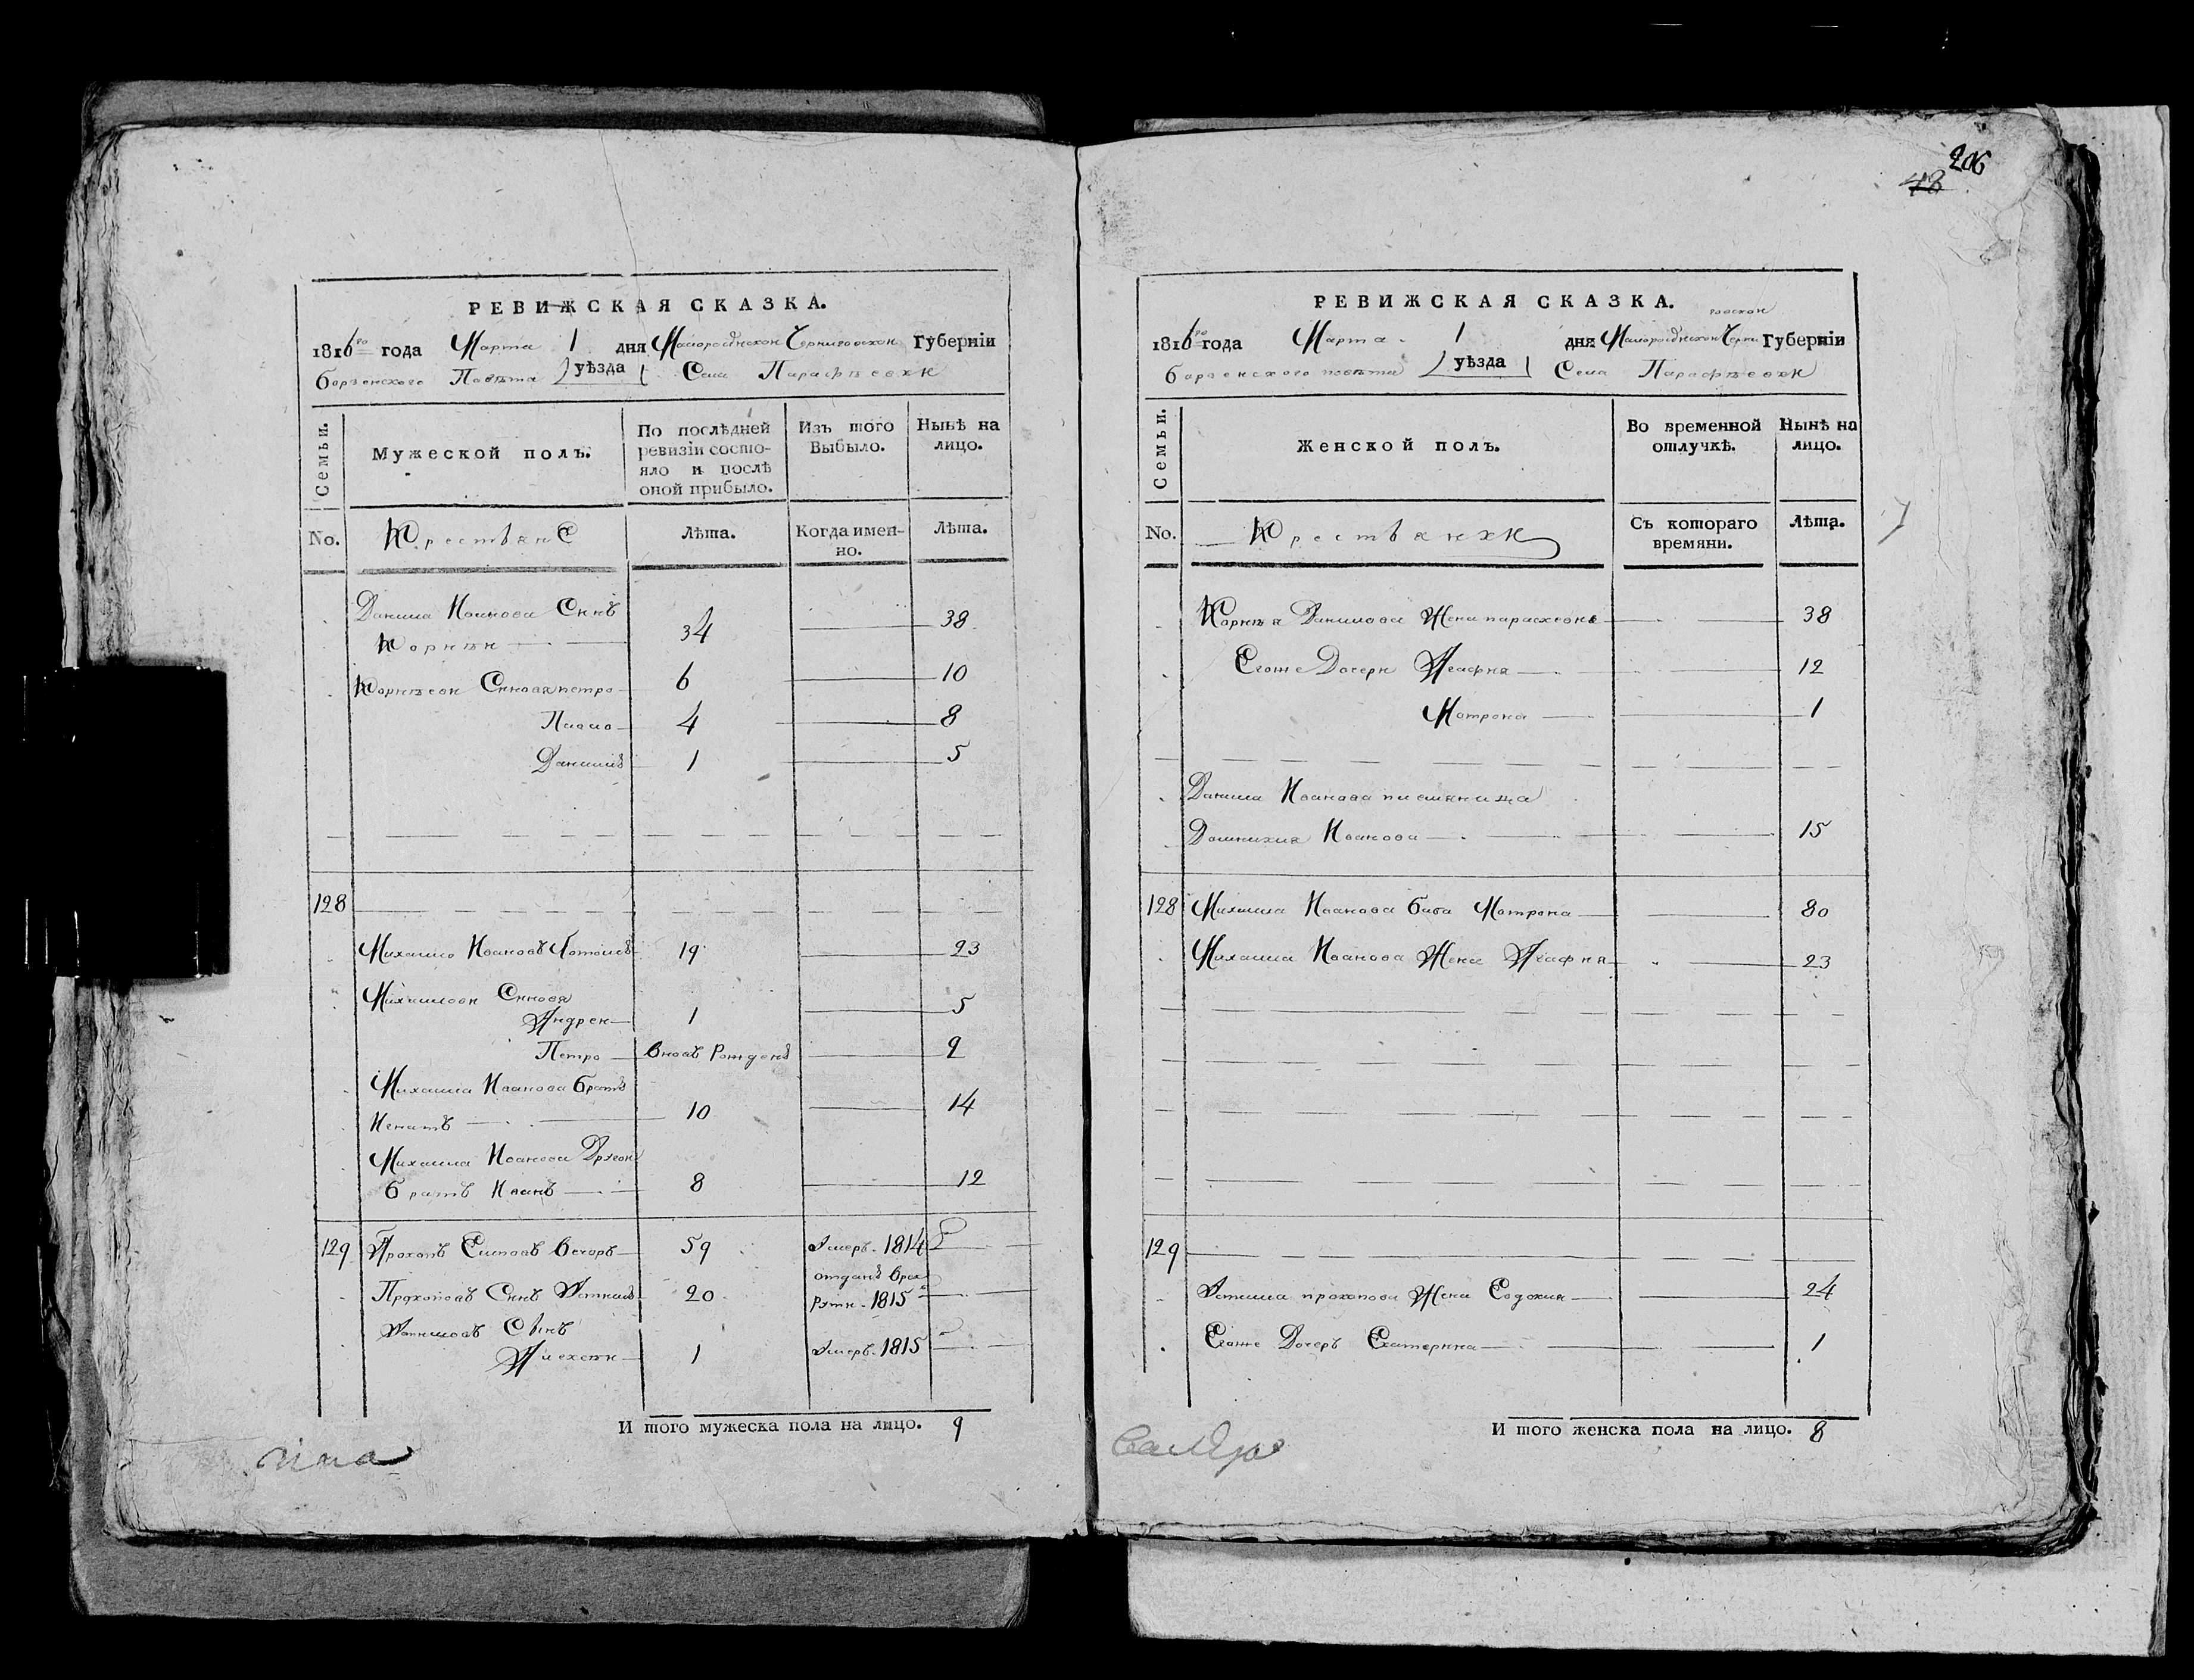 РЕВИЖСКАЯ СКАЗКА.
1816го года Марта 1 дня Малоросійской Черниговской Губерніи
борзенского Повѣта уѣзда Села Парафѣевки
Семьи.
Мужеской полъ.
По послѣдней ревизіи состояло и послѣ оной прибыло.
Изъ того Выбыло.
Нынѣ на лицо.
No.
Крестьяне
Лѣта.
Когда именно.
Лѣта.
Данила Иванова Снъ
Корнѣй 34 38
Корнѣеви Синовя петро 6 10
Павло 4 8
Данило 1 5
128
Михайло Ивановъ 19 23
Михайлови Синовя
Андрей 1 5
Петро вновь Рожденъ 2
Михайла Иванова братъ
Игнатъ 10 14
Михайла Иванова Другой
братъ Иванъ 8 12
129 Прохопъ Вечоръ 59 Умеръ 1814
Прохоповъ Снъ 20 отданъ в рекруты 1815
Синъ
Алексѣй 1 Умеръ 1815
И того мужеска пола на лицо. 9
206
48
РЕВИЖСКАЯ СКАЗКА.
1816го года Марта 1 дня Малоросійской Черниговской Губерніи
борзенского повѣта уѣзда Села Парафѣевки
Семьи.
Женской полъ.
Во временной отлучкѣ.
Нынѣ на лицо.
No.
Крестьянки
Съ котораго времяни.
Лѣта.
Корнѣя Данилова Жена парасковя 38
Егоже Дочери Агафия 12
Матрона 1
Данила Иванова племяница
Домникия Иванова 15
128 Михайла Иванова баба Матрона 80
Михайла Иванова Жена Агафия 23
129
прохопова Жена Евдокия 24
Егоже Дочеръ Екатерина 1
И того женска пола на лицо. 8